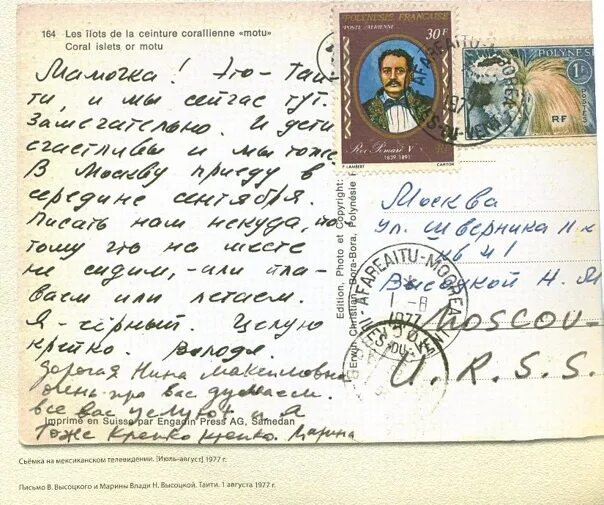 164 Les îlots de la ceinture corallienne «motu»
Coral islets or motu
Мамочка! Это - Таи-
ти, и мы сейчас тут.
Замечательно. И дети
счастливы и мы тоже.
В Москву приеду в
середине сентября.
Писать нам некуда, по-
тому что на месте
не сидим, - или пла-
ваем или летаем.
Я - чёрный. Целую
крепко. Володя.
Дорогая Нина Максимовна
очень про вас думаем.
все вас целуют и А
Тоже крепко крепко. Марина
Imprimé en Suisse par Engadin Press AG, Samedan
Edition, Photo et Copyright:
Erwin Christian, Bora-Bora, Polynésie
POLYNÉSIE FRANÇAISE
POSTE AÉRIENNE
30F
Roi Pomaré V
1839-1891
P. LAMBERT
CARTOR
POLYNÉSIE
1F
RF
AFAREAITU
1977
Москва
ул. Шверника
кв 41
Высоцкой Н. М
MOSCOU -
U.R.S.S.
AFAREAITU-MOOREA
1-8
1977
Съёмка на мексиканском телевидении. [Июль-август] 1977 г.
Письмо В. Высоцкого и Марины Влади Н. Высоцкой. Таити. 1 августа 1977 г.